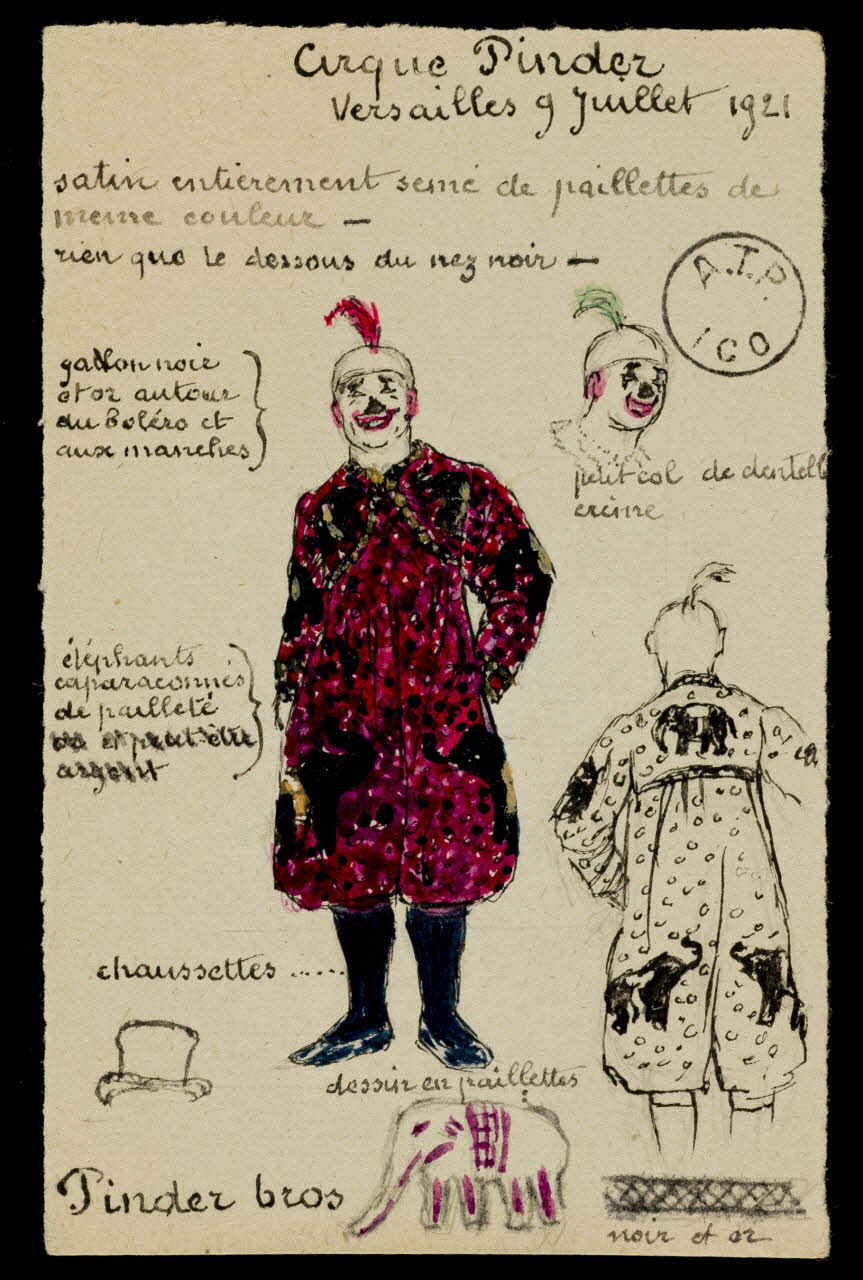 Cirque Pinder
Versailles 9 Juillet 1921
satin entièrement semé de paillettes de
meme couleur —
rien que le dessous du nez noir —
A.T.P.
ICO
gallon noir
et or autour
du boléro et
aux manches
petit col de dentelle
crème
éléphants
caparaconnés
de pailleté
et peut être
argent
chaussettes .....
dessin en paillettes
Pinder bros
noir et or